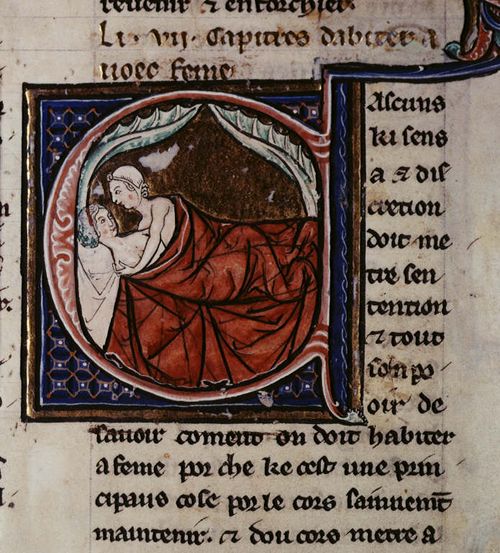 reuenir & entorchier.
Li. vii. Capitres dabiter a
uoec feme
Cascuns
ki sens
a & dis
cretion
doit me
tre sen
tention
& tout
son po
oir de
sauoir coment on doit habiter
a feme por che ke cest une prin
cipaus cose por le cors sainnemt̃
maintenir. & dou cors metre a